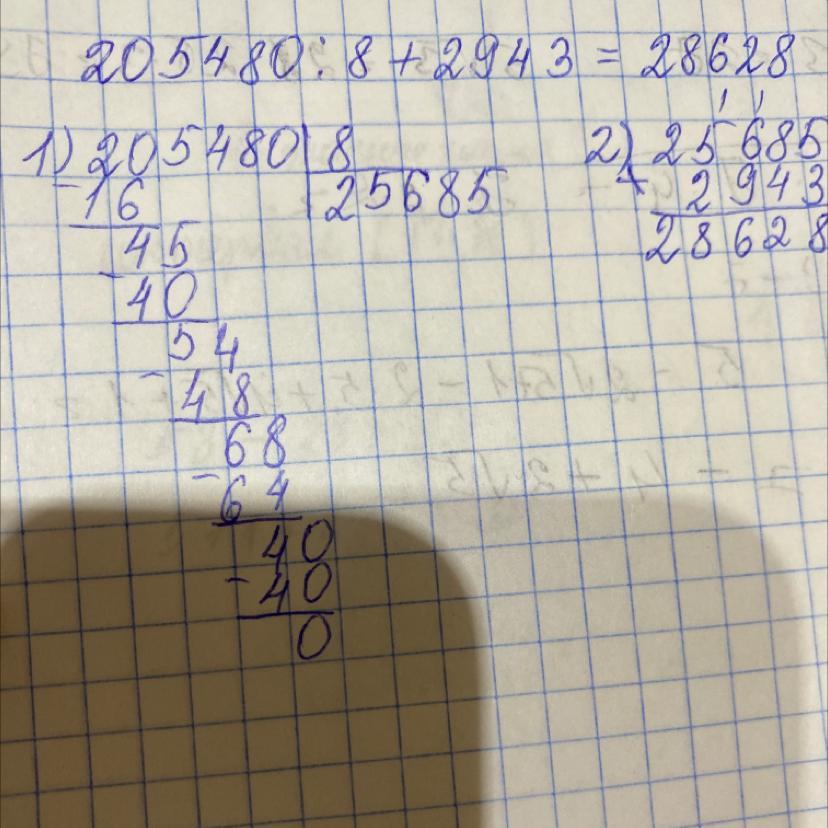 205480 : 8 + 2943 = 28628
1) 205480 | 8
- 16 | 25685
45
- 40
54
- 48
68
- 64
40
- 40
0
2) 25685
+ 2943
28628